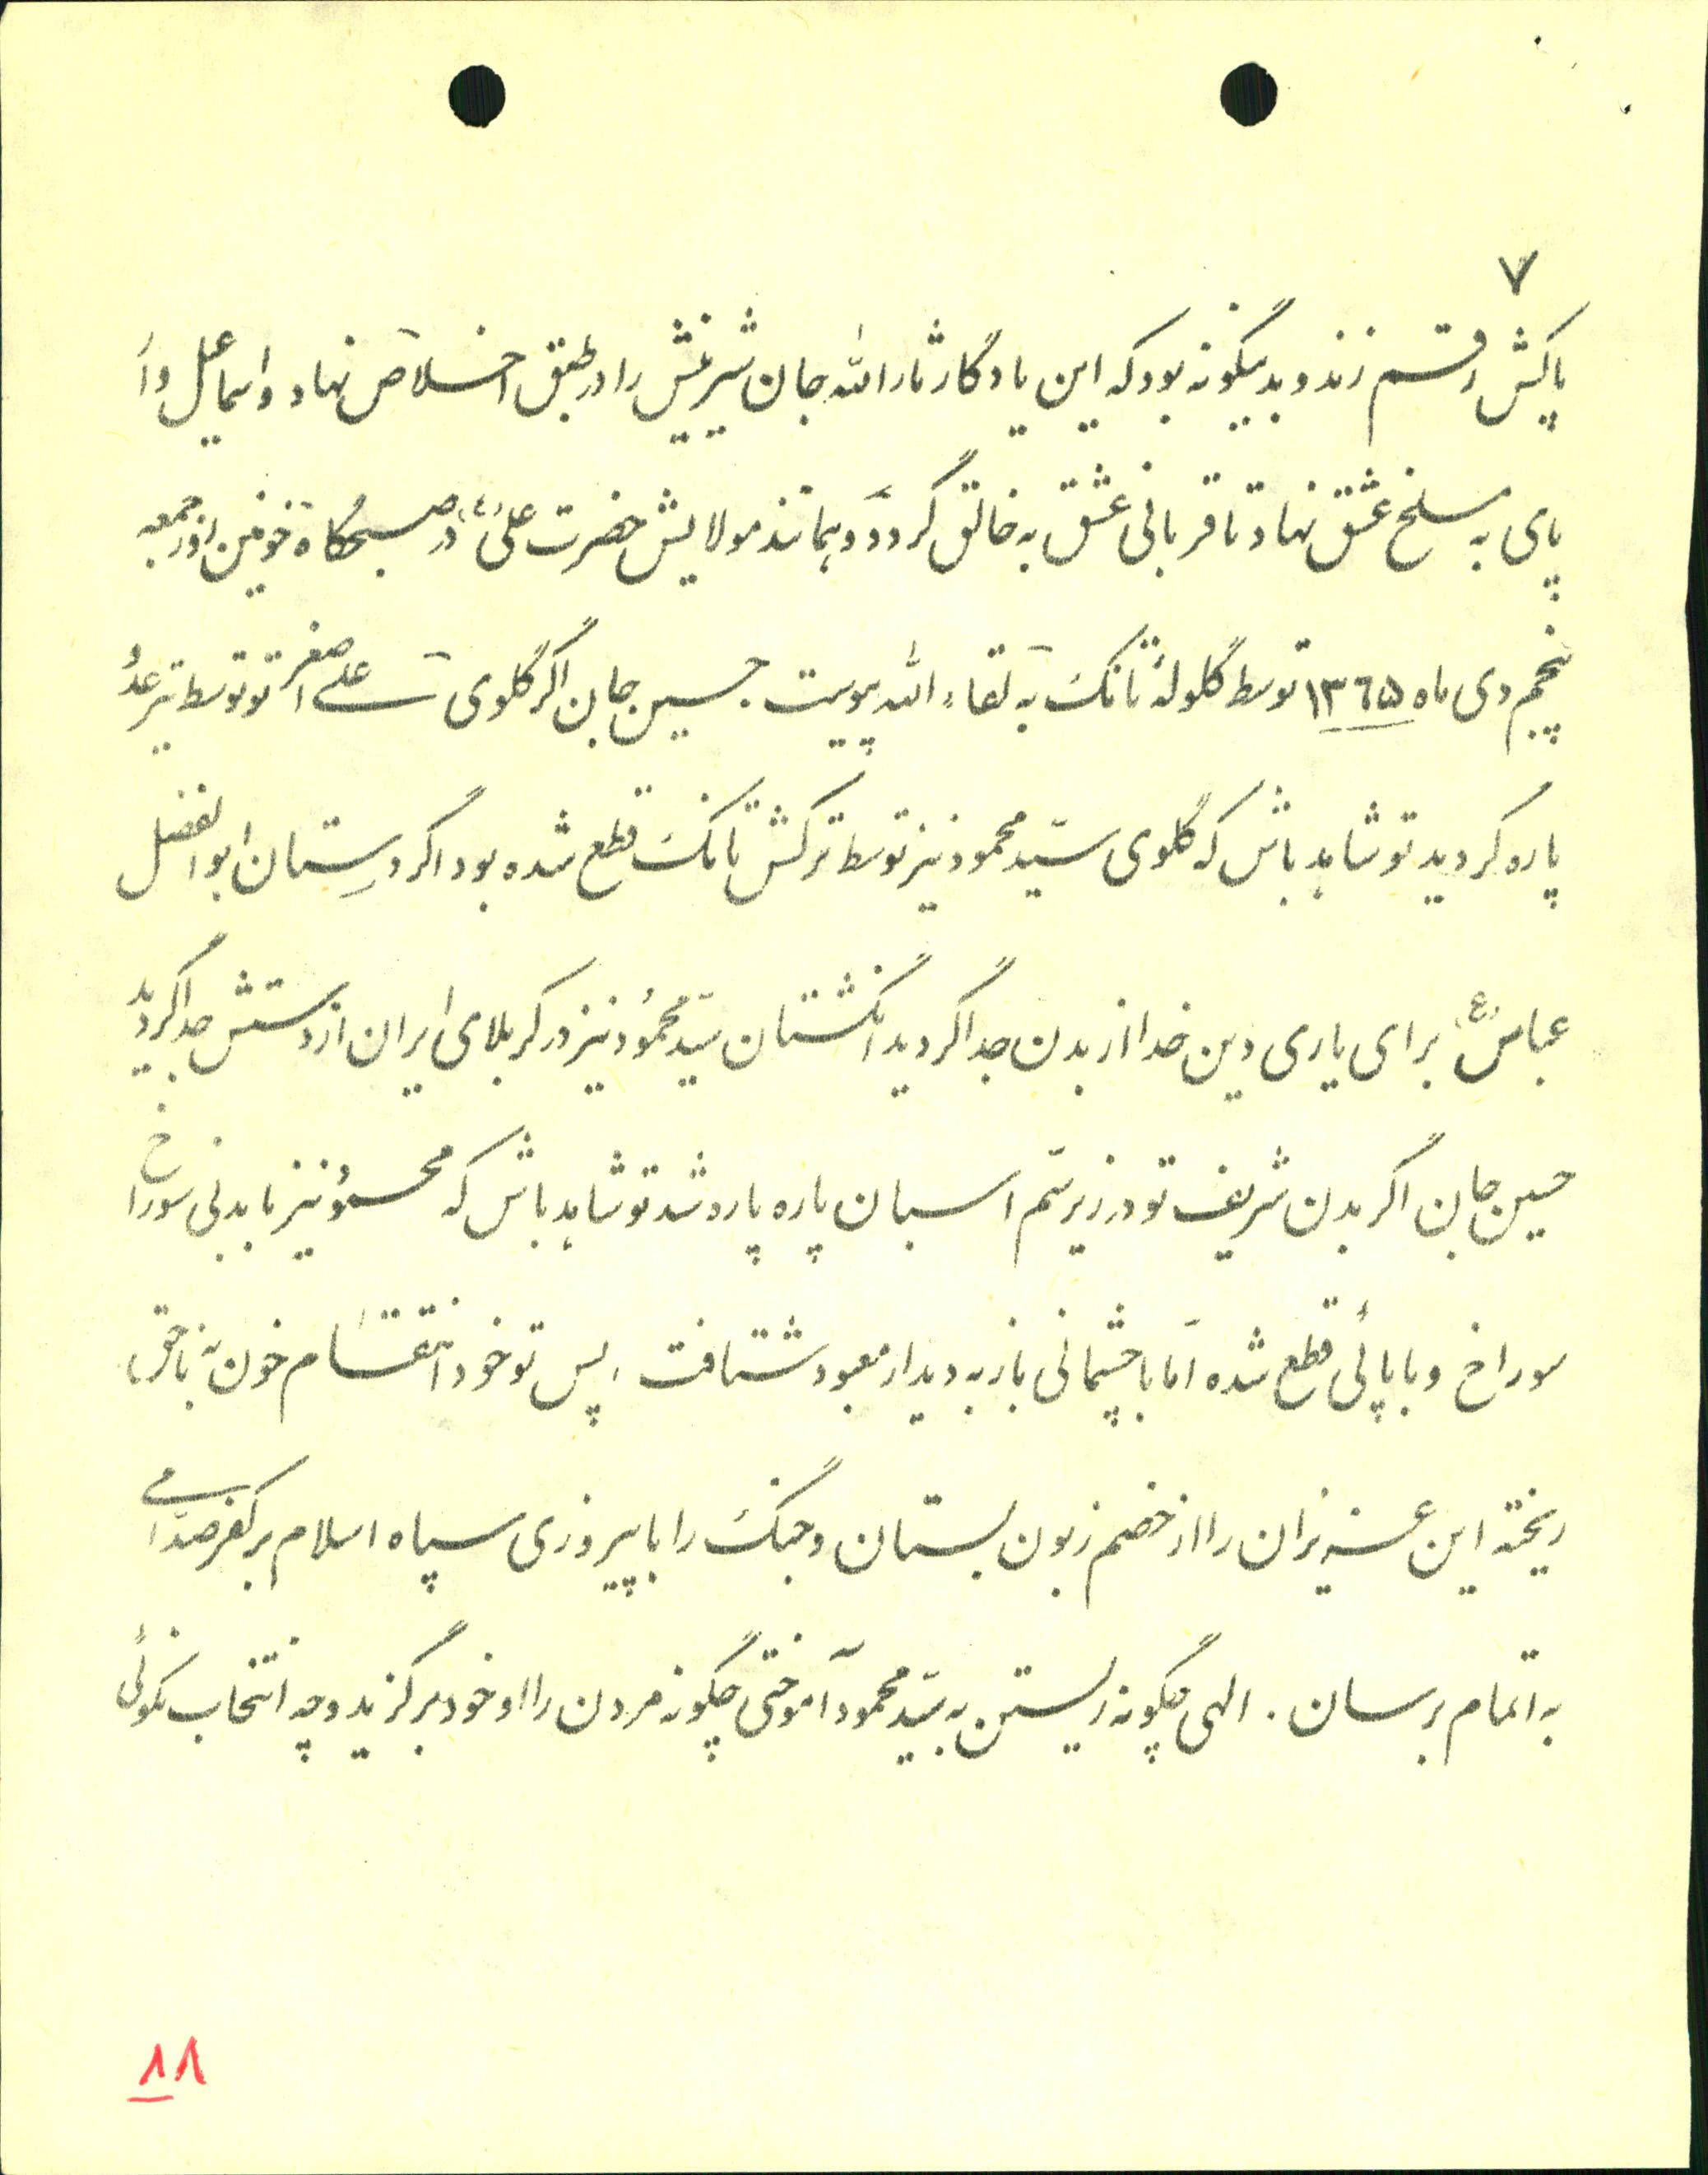 ۷
پاکش رقم زند و بدینگونه بود که این یادگار ثارالله جان شیرینش را در طبق اخلاص نهاد و اسماعیل وار
پای به مسلخ عشق نهاد تا قربانی عشق به خالق گردد و همانند مولایش حضرت علی(ع) در صبحگاه خونین روز جمعه
پنجم دی ماه ۱۳۶۵ توسط گلولهٔ تانک به لقاء الله پیوست. حسین جان اگر گلوی علی اصغر تو توسط تیر عدُو
پاره گردید تو شاهد باش که گلوی سیّد محمود نیز توسط ترکش تانک قطع شده بود اگر دستان ابوالفضل
عباس(ع) برای یاری دین خدا از بدن جدا گردید انگشتان سیّد محمود نیز در کربلای ایران از دستش جدا گردید
حسین جان اگر بدن شریف تو در زیر سّم اسبان پاره پاره شد تو شاهد باش که محمود نیز با بدنی سوراخ
سوراخ و با پائی قطع شده امّا با چشمانی باز به دیدار معبود شتافت. پس تو خود انتقام خون به ناحق
ریخته این عزیزان را از خصم زبون بستان و جنگ را با پیروزی سپاه اسلام بر کفر صدّامی
به اتمام برسان. الهی چگونه زیستن به سیّد محمود آموختی چگونه مردن را او خود برگزید و چه انتخاب نکوئی
۱۸